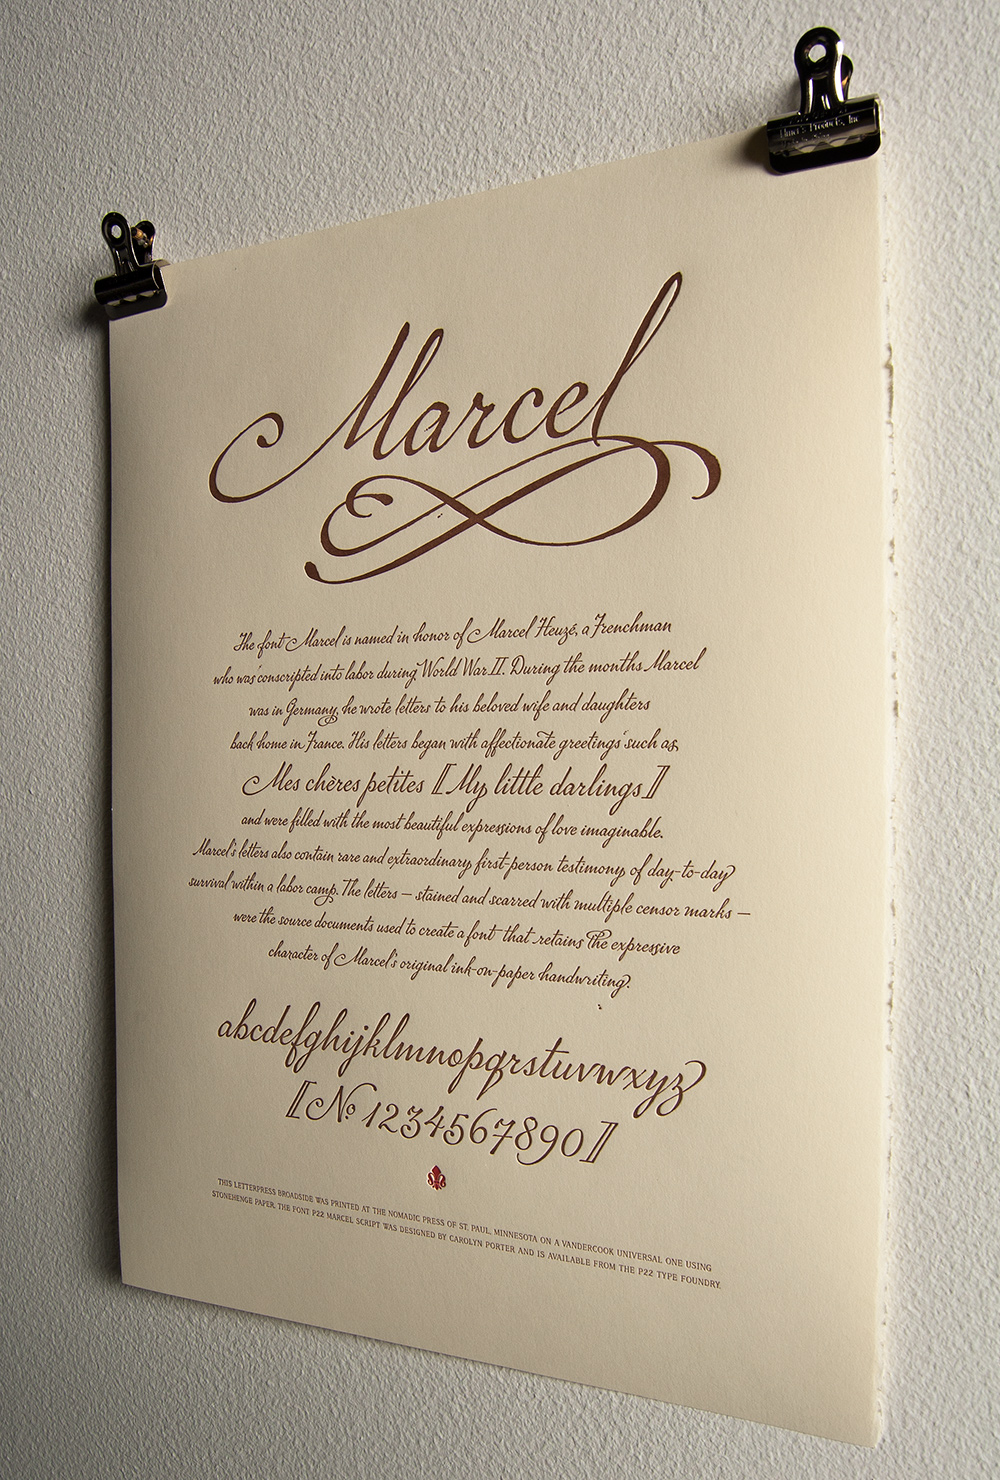 Elmer's Products, Inc
Marcel
The font Marcel is named in honor of Marcel Heuzé, a Frenchman
who was conscripted into labor during World War II. During the months Marcel
was in Germany, he wrote letters to his beloved wife and daughters
back home in France. His letters began with affectionate greetings such as
Mes chères petites [My little darlings]
and were filled with the most beautiful expressions of love imaginable.
Marcel's letters also contain rare and extraordinary first-person testimony of day-to-day
survival within a labor camp. The letters — stained and scarred with multiple censor marks —
were the source documents used to create a font that retains the expressive
character of Marcel's original ink-on-paper handwriting.
abcdefghijklmnopqrstuvwxyz
[№ 1234567890]
THIS LETTERPRESS BROADSIDE WAS PRINTED AT THE NOMADIC PRESS OF ST. PAUL, MINNESOTA ON A VANDERCOOK UNIVERSAL ONE USING
STONEHENGE PAPER. THE FONT P22 MARCEL SCRIPT WAS DESIGNED BY CAROLYN PORTER AND IS AVAILABLE FROM THE P22 TYPE FOUNDRY.